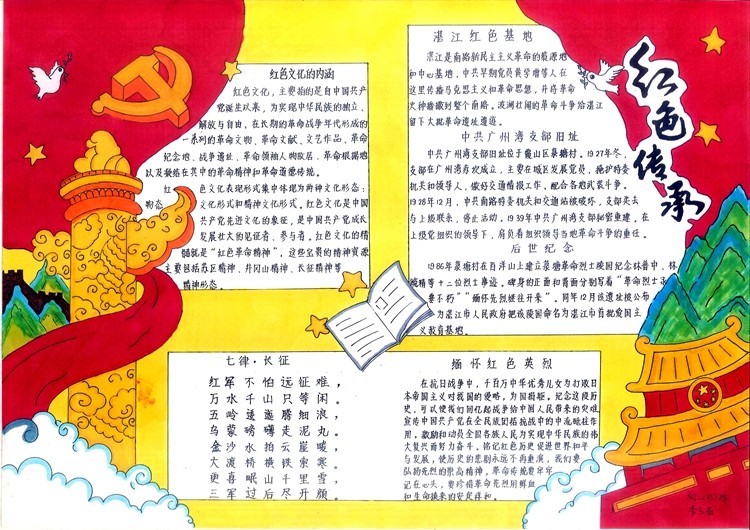 红色传承
红色文化的内涵
红色文化，主要指的是自中国共产
党诞生以来，为实现中华民族的独立、
解放与自由，在长期的革命战争年代形成的
一系列的革命文物、革命文献、文艺作品、革命
纪念地、战争遗址、革命领袖人物故居、革命根据地
以及凝结在其中的革命精神和革命道德传统。
红色文化表现形式集中体现为两种文化形态：
物态文化形式和精神文化形式。红色文化是中国
共产党先进文化的象征，是中国共产党成长
发展壮大的见证者、参与者。红色文化的精
髓就是“红色革命精神”，这些宝贵的精神资源
主要包括苏区精神、井冈山精神、长征精神等
精神形态。
湛江红色基地
湛江是南路新民主主义革命的策源地
和中心基地，中共早期党员黄学增等人在
这里传播马克思主义和革命思想，并将革命
火种播撒到整个南路。波澜壮阔的革命斗争给湛江
留下大批革命遗址遗迹。
中共广州湾支部旧址
中共广州湾支部旧址位于霞山区菉塘村。1927年冬，
支部在广州湾首次成立，主要在城区发展党员，掩护特委
机关和领导人，做好交通情报工作，配合各地武装斗争。
1928年12月，中共南路特委机关和交通站被破坏，支部失去
与上级联系，停止活动。1939年中共广州湾支部秘密重建，在
上级党组织的领导下，肩负着组织领导当地革命斗争的重任。
后世纪念
1986年菉塘村在百浮山上建立菉塘革命烈士陵园纪念林
等十二位烈士事迹。碑身的正面和背面分别写着“革命烈士永
垂不朽”“缅怀先烈继往开来”。同年12月该遗址被公布
为湛江市人民政府把该陵园命名为湛江市首批爱国主
义教育基地。
七律·长征
红军不怕远征难，
万水千山只等闲。
五岭逶迤腾细浪，
乌蒙磅礴走泥丸。
金沙水拍云崖暖，
大渡桥横铁索寒。
更喜岷山千里雪，
三军过后尽开颜。
缅怀红色英烈
在抗日战争中，千百万中华优秀儿女为打败日
本帝国主义对我国的侵略，为国捐躯。纪念这段历
史，可以使我们回忆起战争给中国人民带来的灾难
宣传中国共产党在全民族团结抗战中的中流砥柱作
用，激励和动员全国各族人民为实现中华民族的伟
大复兴而努力奋斗。铭记红色历史促进世界和平
与发展，使历史的悲剧永远不再重演，我们要
弘扬先烈的崇高精神，革命传统要牢牢
记在心头，要珍惜革命先烈用鲜血
和生命换来的安定祥和。